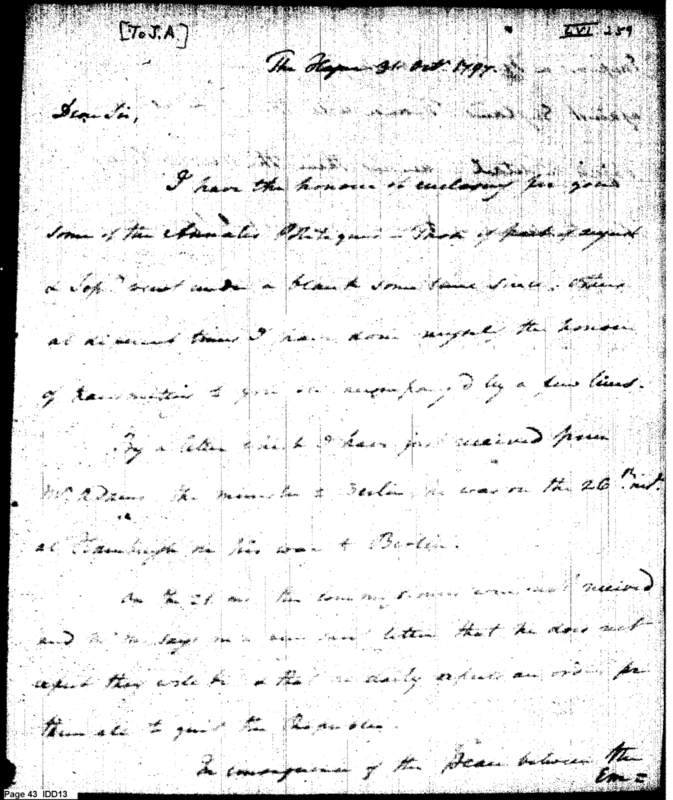 [To J.A]
LVI 259
The Hague 31. Oct. 1797.
Dear Sir,
I have the honour of enclosing for you
some of the Annales Politiques - Those of part of August
& Sepr. went under a blank some time since. Others
at different times I have done myself the honour
of transmitting to you accompany'd by a few lines.
By a letter which I have just received from
Mr. Adams the minister to Berlin, he was on the 26th. inst.
at Hamburgh on his way to Berlin.
On the 21. the commissioners were not received
and Mr. says in a letter that he does not
expect they will be & that he daily expects an order for
them all to quit the Republic.
In consequence of the Peace between the
Em=
Page 43 IDD13